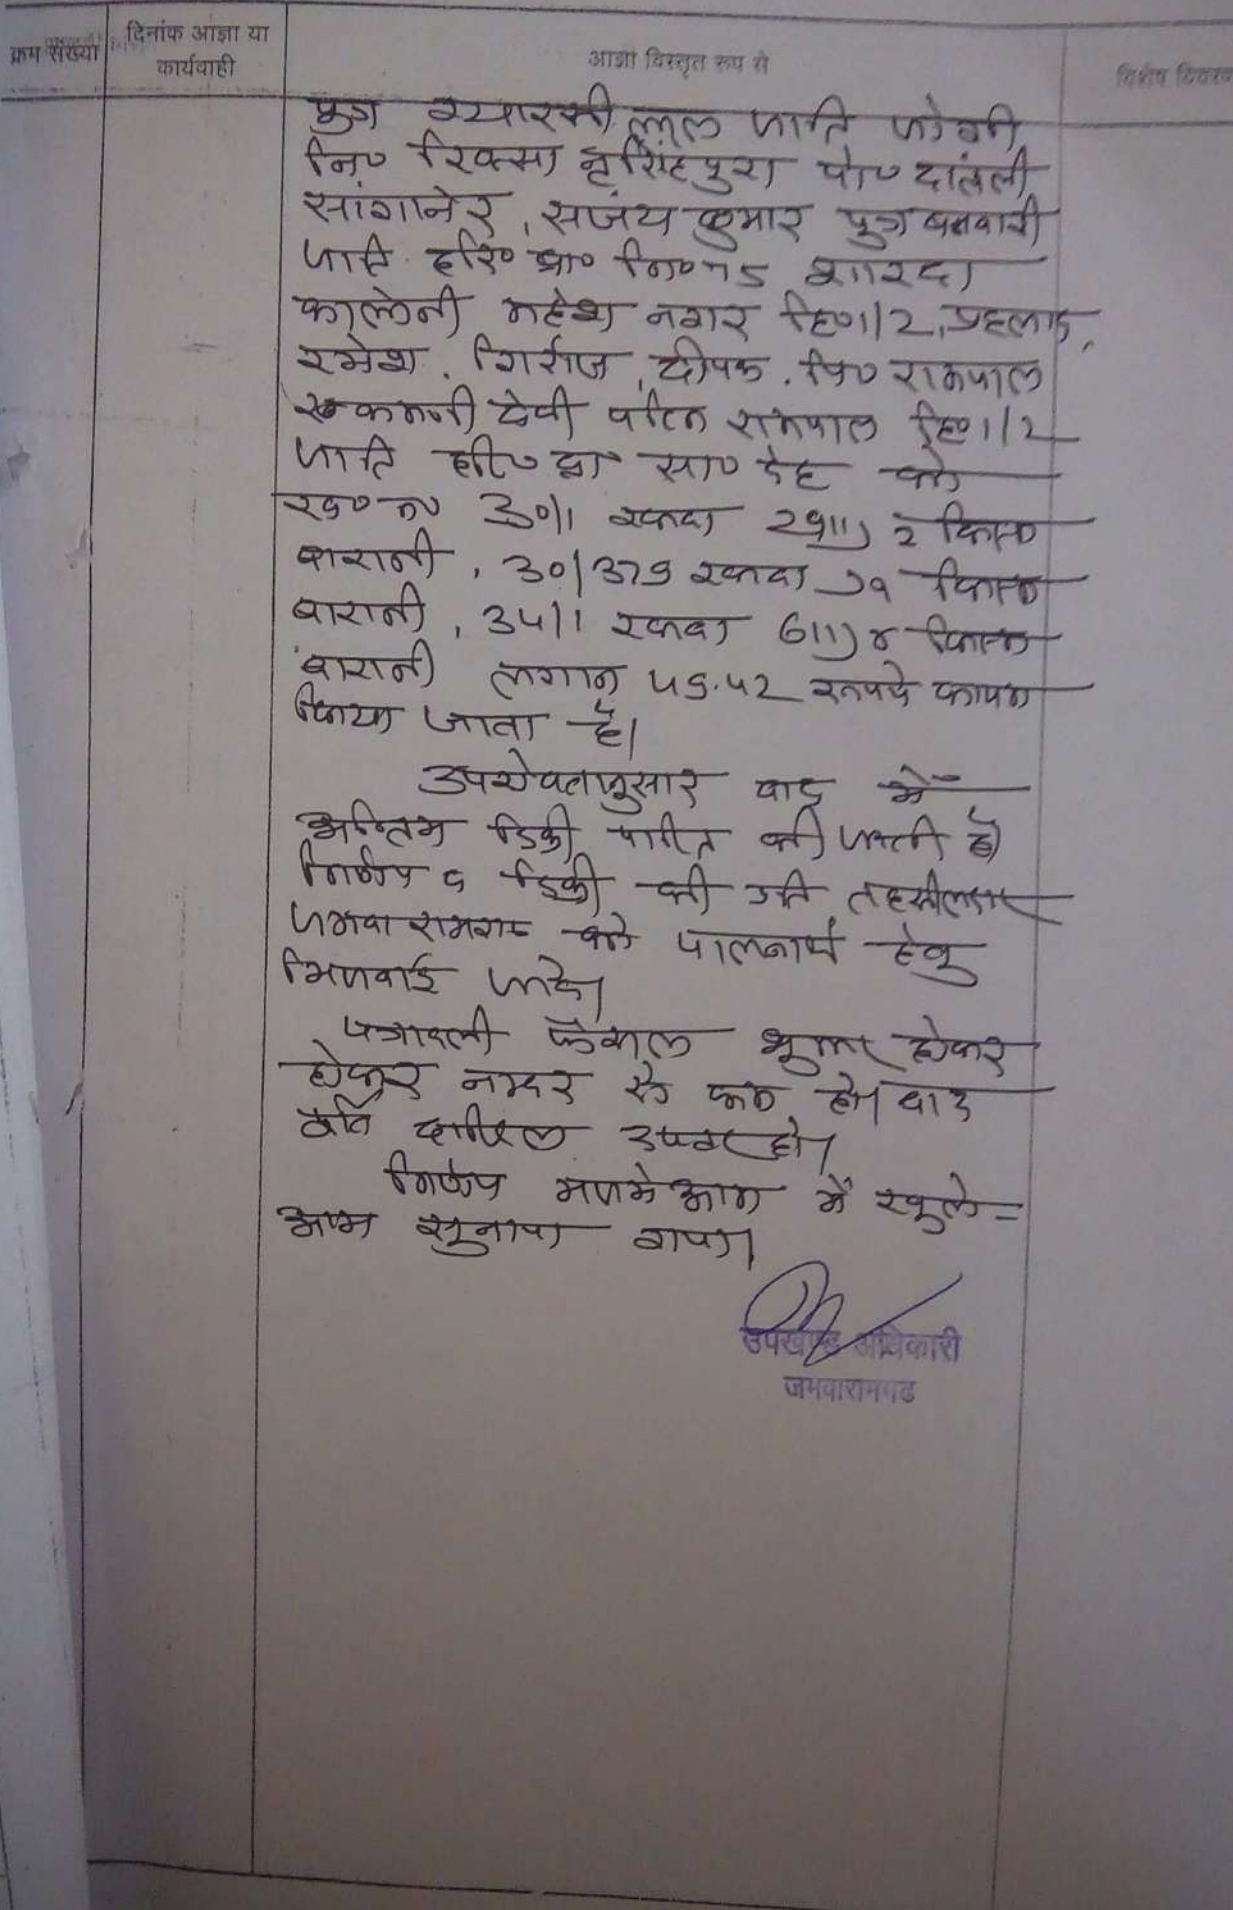 क्रम संख्या
दिनांक आज्ञा या
कार्यवाही
आज्ञा विस्तृत रूप से
विशेष विवरण
पुत्र ग्यारसी लाल जाति जोगी
नि० रिक्सा नृसिंहपुरा पो० दांतली
सांगानेर, संजय कुमार पुत्र बनवारी
जाति हरि० ब्रा० नि० 75 शारदा
कालोनी महेश नगर हि० 1/2, प्रहलाद,
रमेश, गिर्राज, दीपक, पि० रामपाल
रूकमणी देवी पत्नि रामपाल हि० 1/2
जाति हरि० ब्रा सा० देह को
ख० न० 30/1 रकबा 29111) 2 किस्म
बारानी, 30/379 रकबा किस्म
बारानी, 34/1 रकबा 6111) 4 किस्म
बारानी लगान 49.42 रूपये कायम
किया जाता है।
उपरोक्तानुसार वाद में
अन्तिम डिक्री पारित की जाती है
निर्णय व डिक्री की प्रति तहसीलदार
जमवारामगढ को पालनार्थ हेतु
भिजवाई जावे।
पत्रावली फैसल शुमार होकर
होकर नम्बर से कम हो। बाद
पूर्ति दाखिल दफ्तर हो।
निर्णय मजमे आम में खुले-
आम सुनाया गया।
उपखण्ड अधिकारी
जमवारामगढ